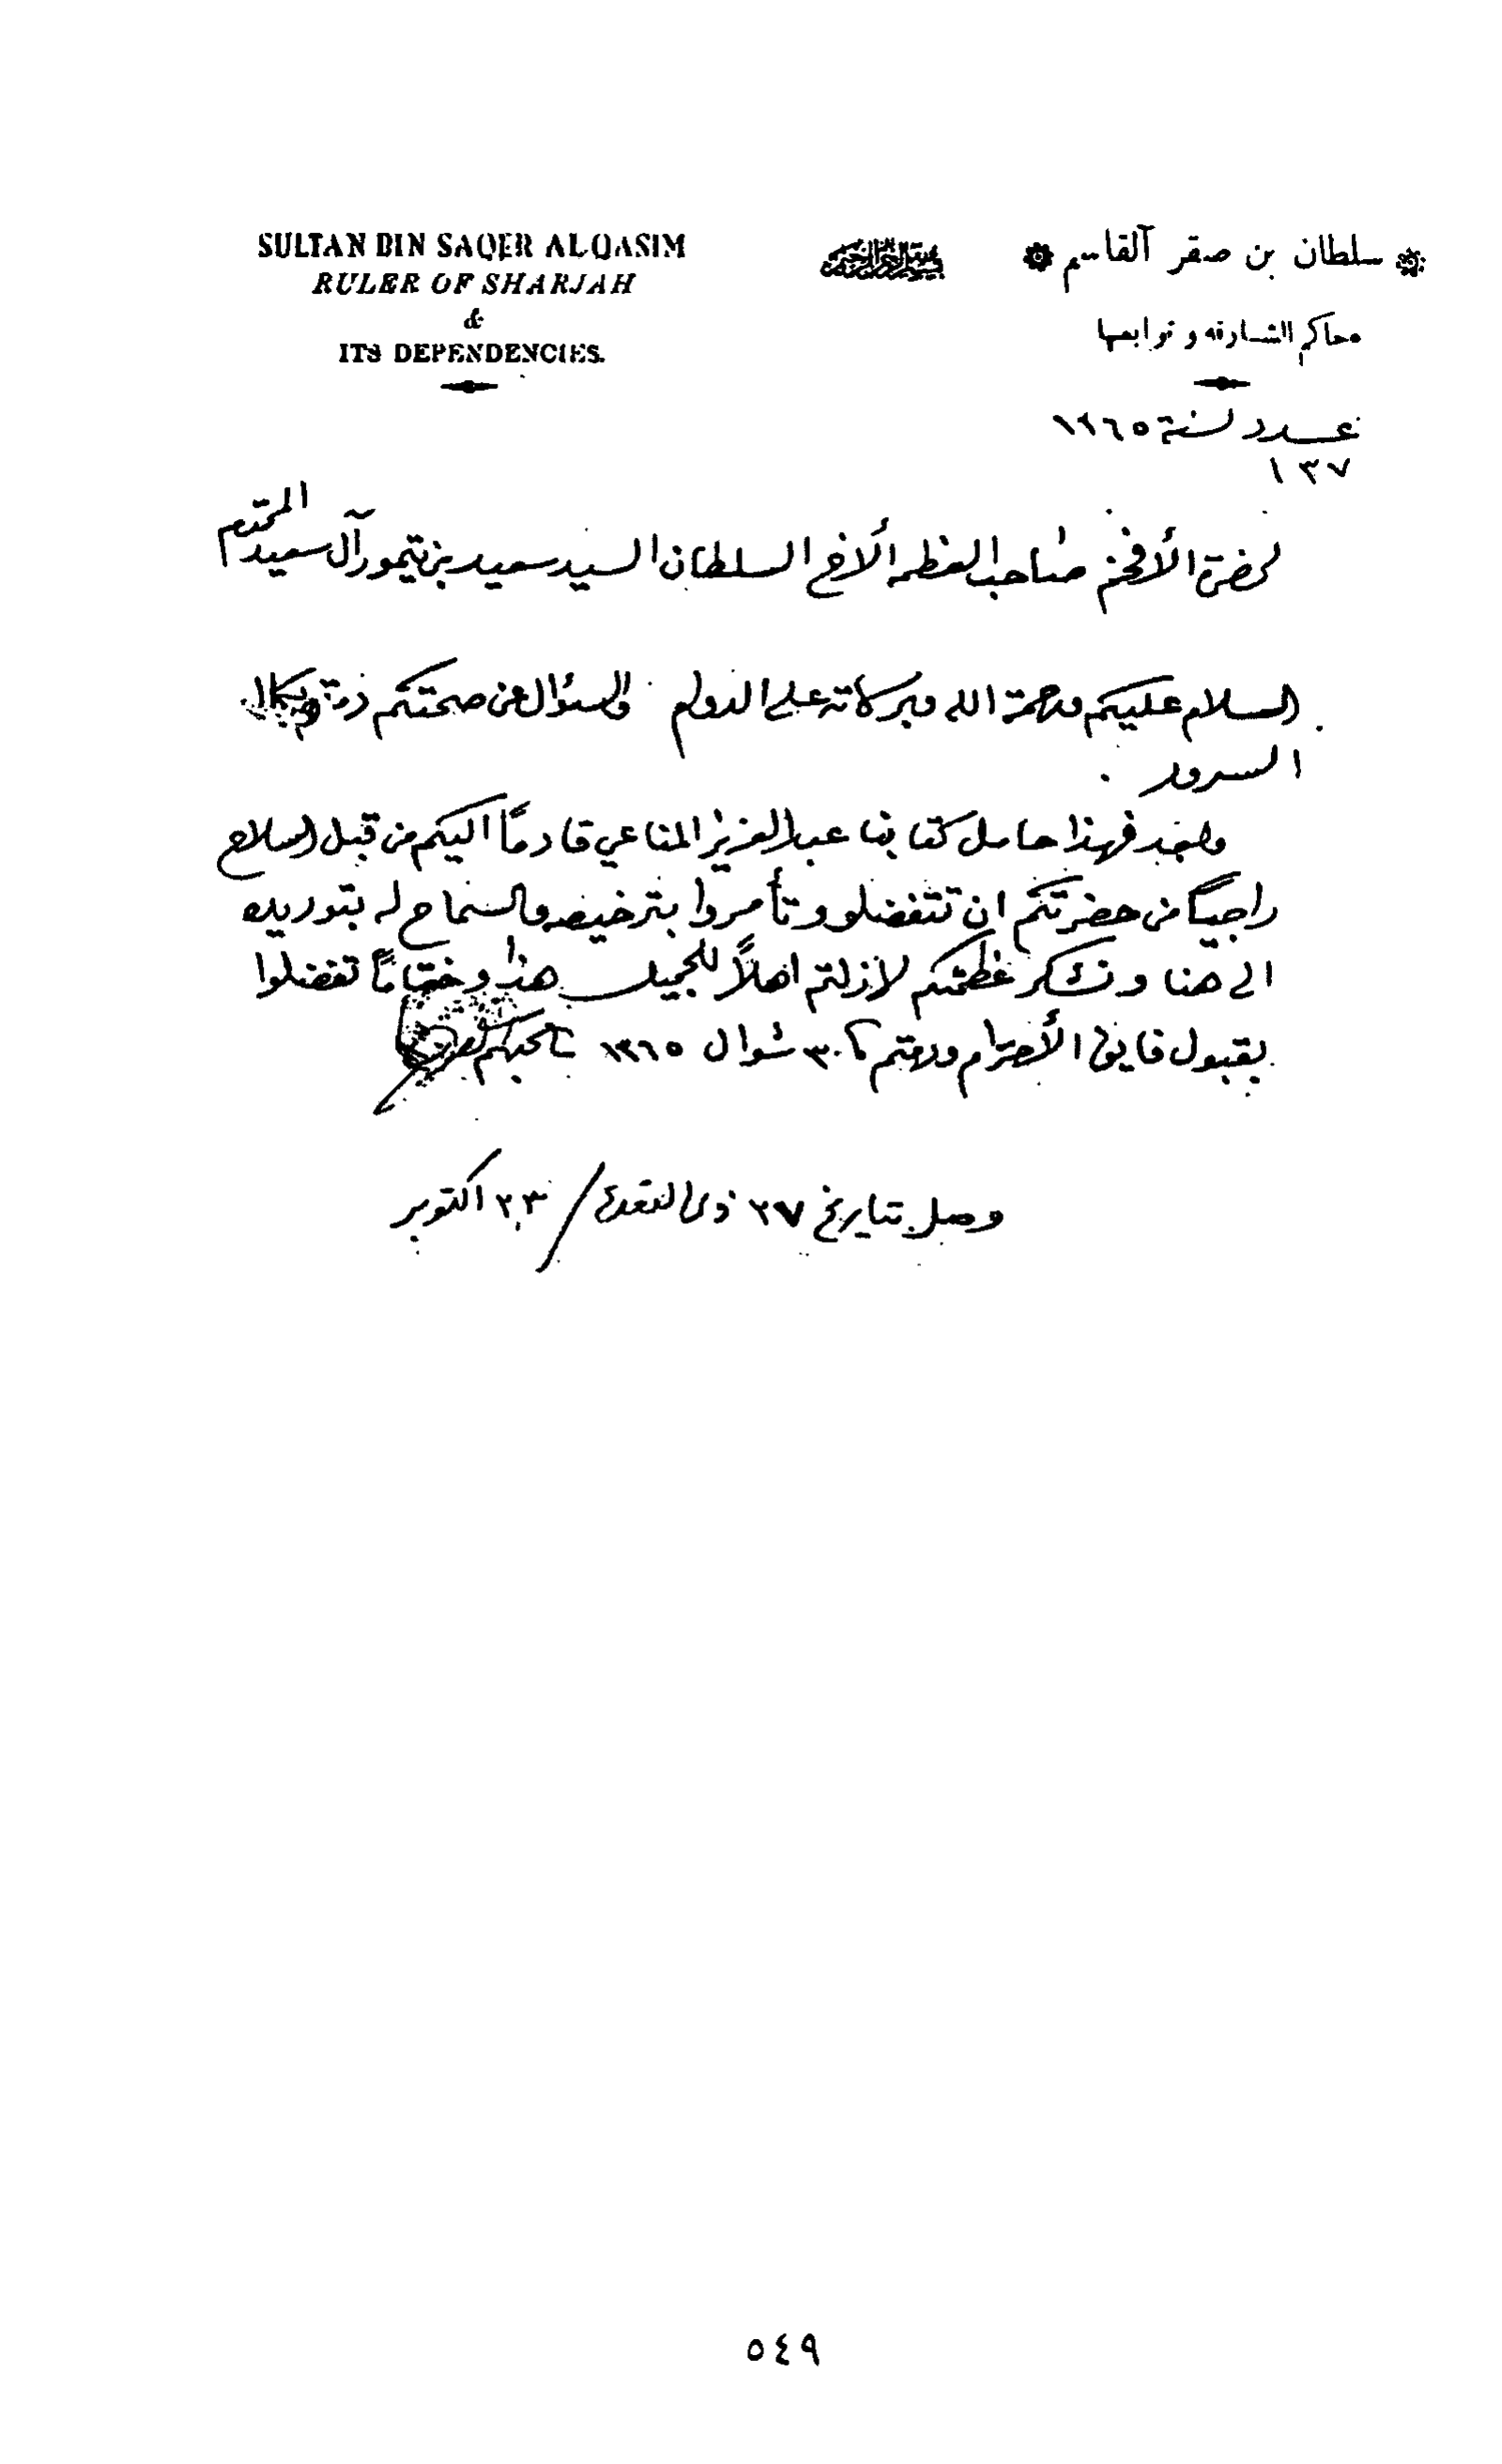 SULTAN BIN SAQER ALQASIM
RULER OF SHARJAH
&
ITS DEPENDENCIES.
بسم الله الرحمن الرحيم
سلطان بن صقر آلقاسم
حاكم الشارقه و توابعها
عدد لسنة ١٣٦٥
١٣٧
لحضرة الأفخم صاحب العظمه الأخ السلطان السيد سعيد بن تيمور آل سعيد المحترم
السلام عليكم ورحمة الله وبركاته على الدوام والسؤال عن صحتكم دمتم بكمال
السرور .
وبعد فهذا حامل كتابنا عبدالعزيز المناعي قادماً اليكم من قبل السلاح
راجياً من حضرتكم ان تتفضلو وتأمروا بترخيصه والسماح له بتوريده
الى هنا ونشكر عظمتكم لازلتم اهلاً للجميل هذا وختاماً تفضلوا
بقبول فايق الأحترام ودمتم ٣٠ شوال ١٣٦٥ محبكم
وصل بتاريخ ٢٧ ذى القعدة / ٢٣ اكتوبر
٥٤٩